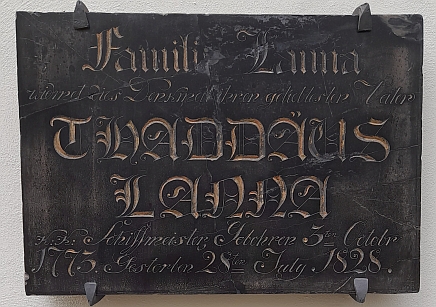 Familie Lanna
widmet dies Denkmal ihrem geliebtesten Vater
THADDÄUS
LANNA
K. K. Schiffmeister, Gebohren 5ten Octobr
1775. Gestorben 28ten July 1828.